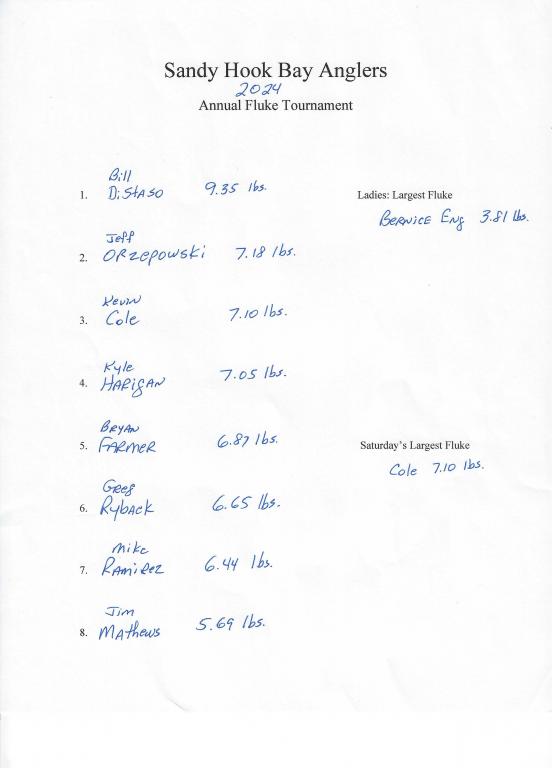 Sandy Hook Bay Anglers
2024
Annual Fluke Tournament
Bill
1. DiStaso 9.35 lbs.
Ladies: Largest Fluke
Bernice Eng 3.81 lbs.
Jeff
2. Orzepowski 7.18 lbs.
Kevin
3. Cole 7.10 lbs.
Kyle
4. Harigan 7.05 lbs.
Bryan
5. Farmer 6.87 lbs.
Saturday's Largest Fluke
Cole 7.10 lbs.
Greg
6. Ryback 6.65 lbs.
Mike
7. Ramirez 6.44 lbs.
Jim
8. Mathews 5.69 lbs.